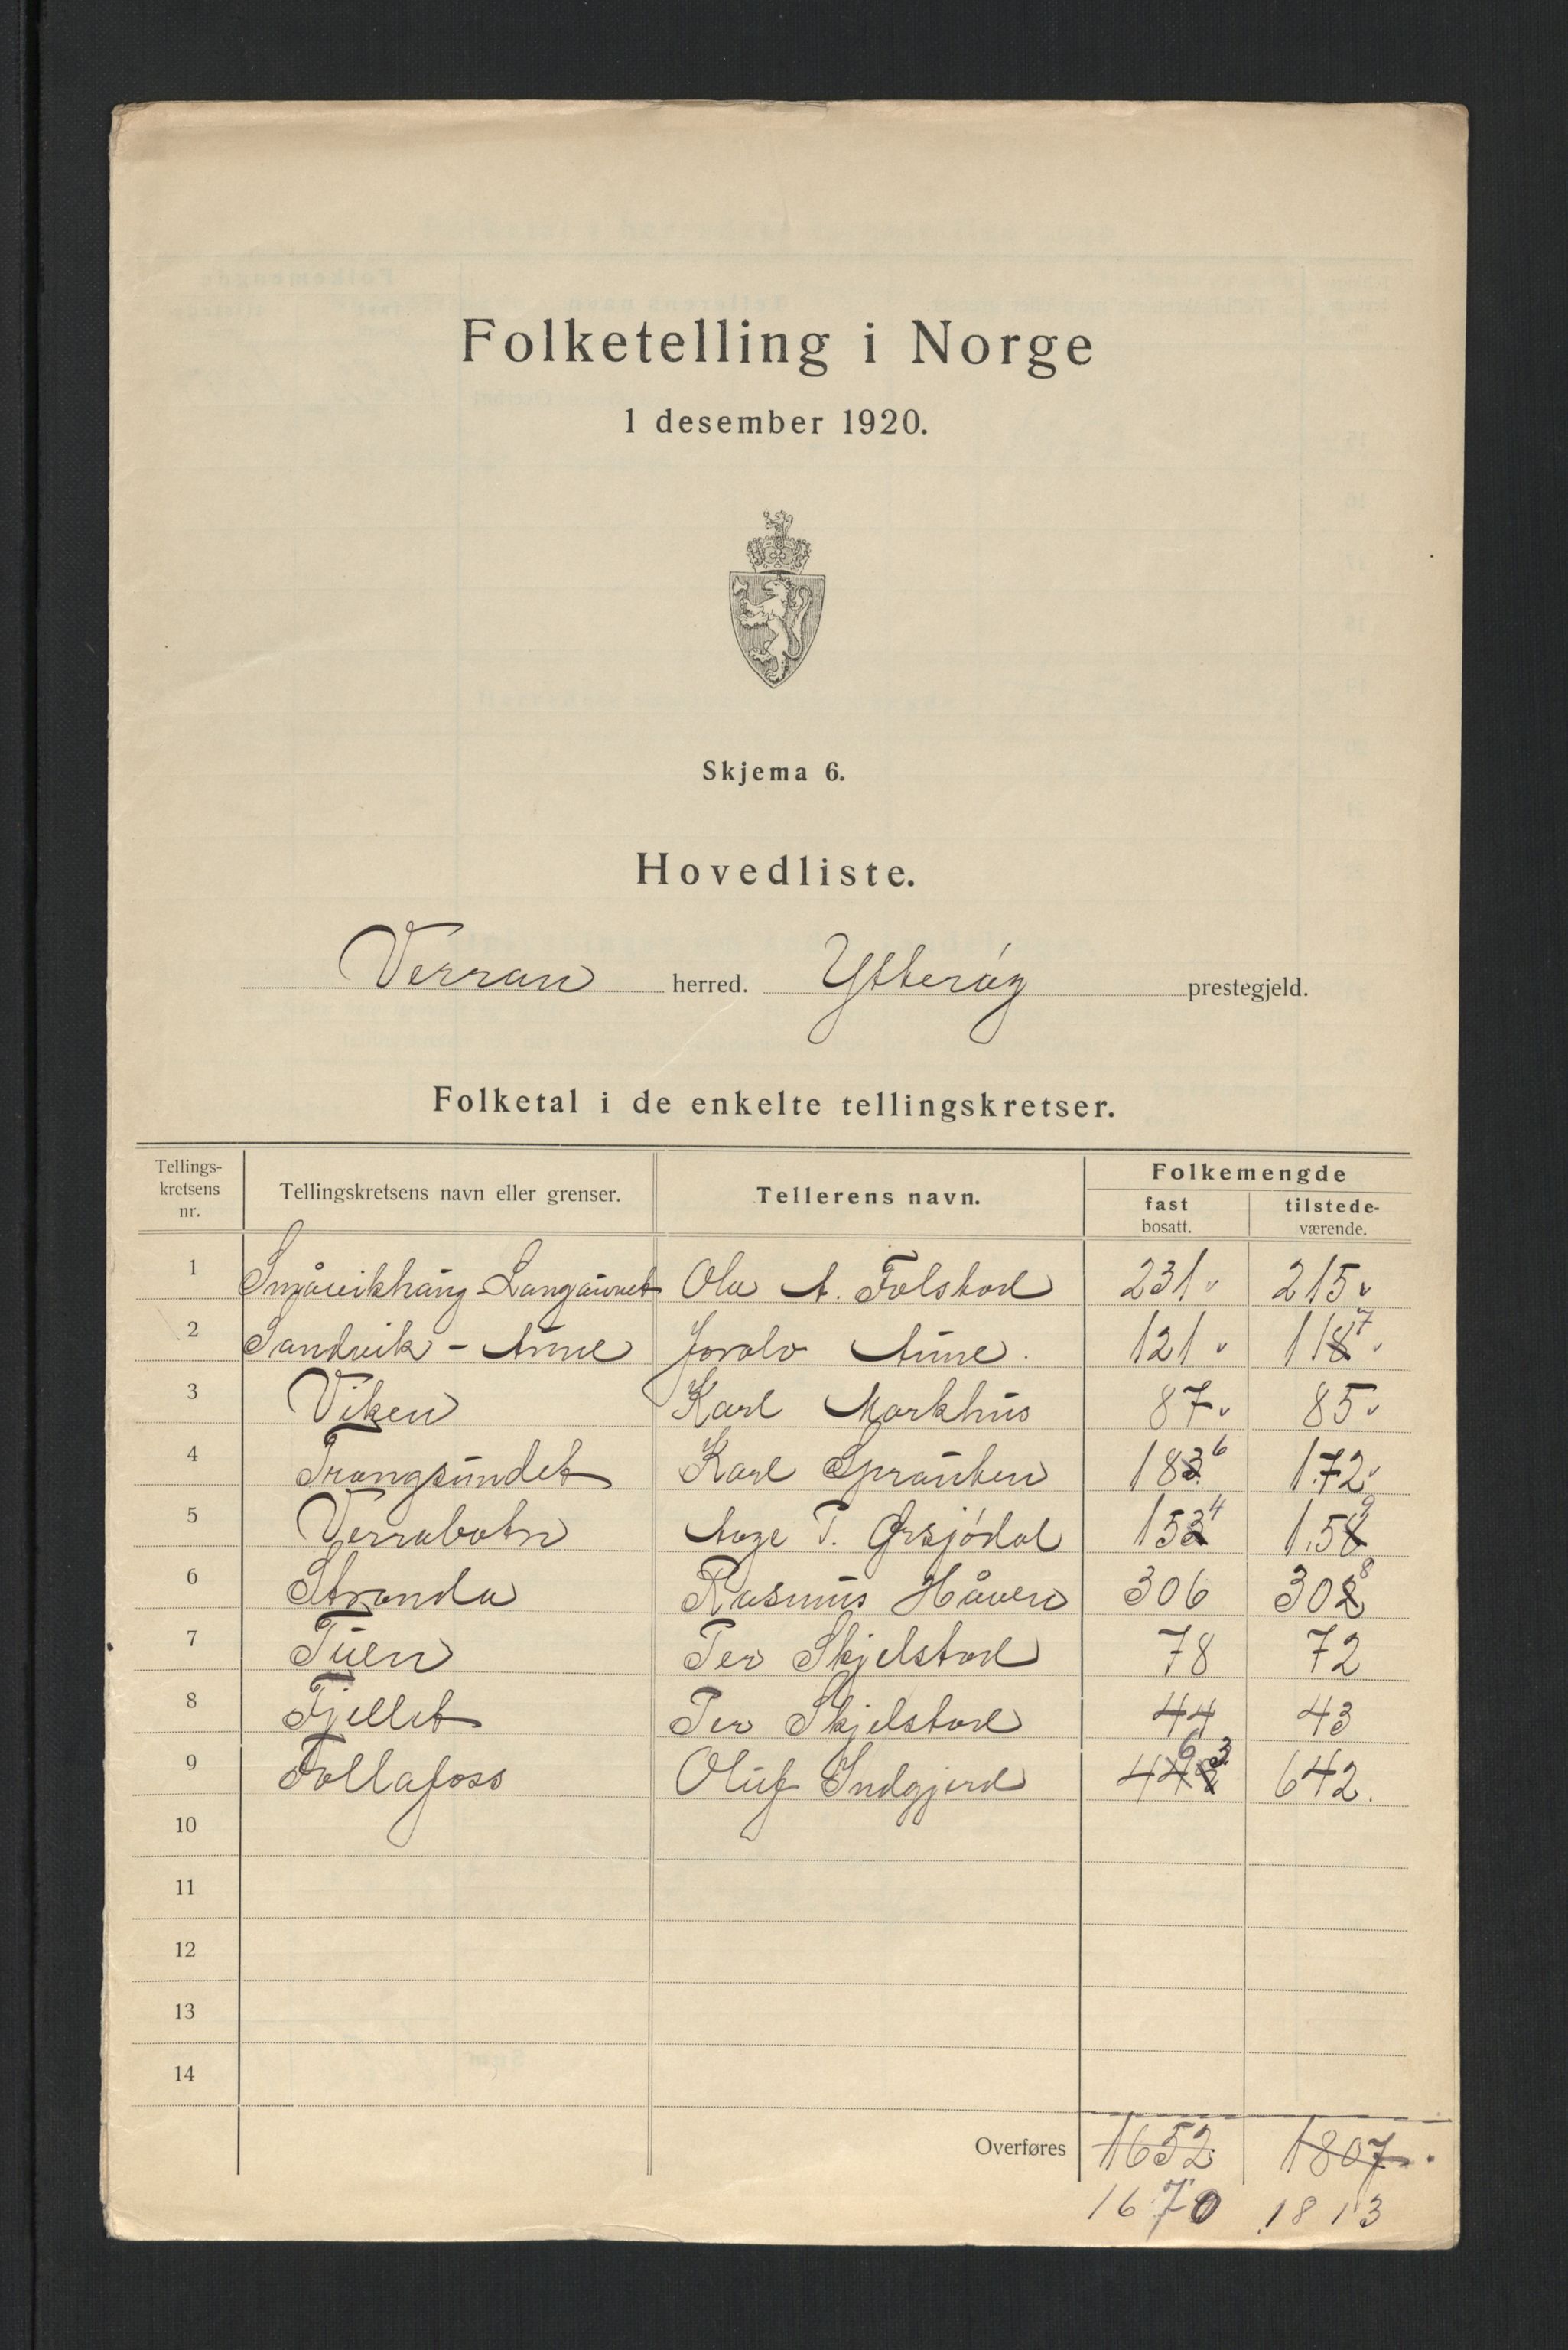 Folketelling i Norge
1 desember 1920.
Skjema 6.
Hovedliste.
Verran herred. Ytterøy prestegjeld.
Folketal i de enkelte tellingskretser.
Tellings-kretsens nr. Tellingskretsens navn eller grenser. Tellerens navn. Folkemengde
fast bosatt. tilstede-værende.
1 Småvikhaug-Langaunet Ola A. Folstad 231 215
2 Sandvik - Aune Joralv Aune. 121 118 7
3 Viken Karl Markhus 87 85
4 Trangsundet Karl Sprauten 183 6 172
5 Verrabotn Aage T. Ørsjødal 153 4 158 9
6 Stranda Rasmus Håven 306 302 8
7 Tuen Per Skjelstad 78 72
8 Fjellet Per Skjelstad 44 43
9 Follafoss Oluf Indgjerd 63 642.
10
11
12
13
14
Overføres 1652 1807
1670 1813